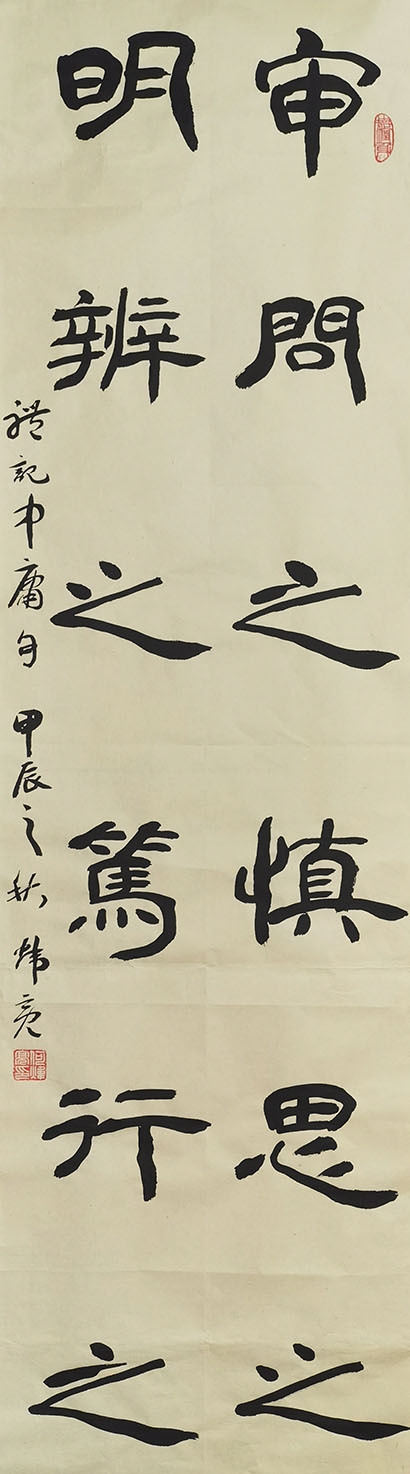 审问之慎思之
明辨之篤行之
禮記中庸句 甲辰之秋 炜亮